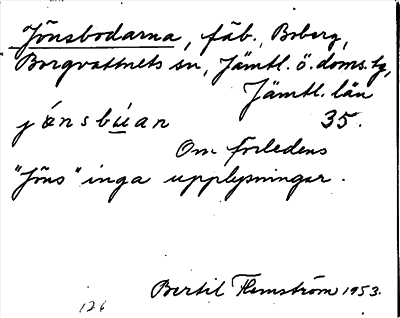 Jönsbodarna, fäb., Boberg,
Borgvattnets sn, Jämtl. ö. doms. tg,
Jämtl. län
jónsbúan 35.
Om förledens
"Jöns" inga upplysningar.
Bertil Flemström 1953.
126